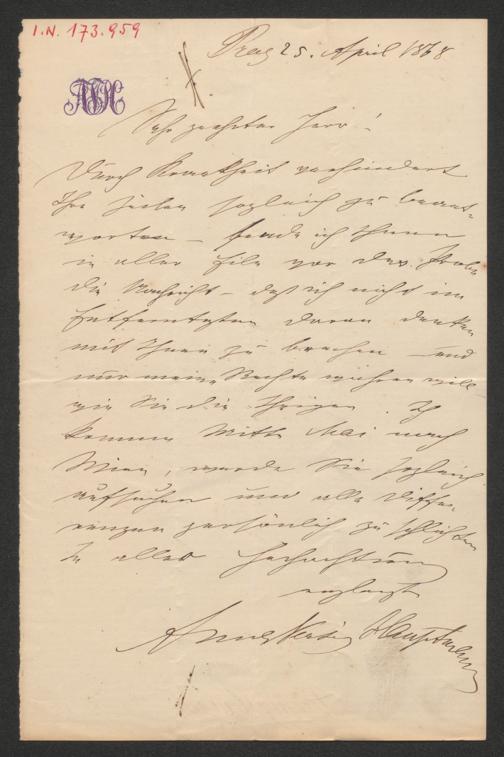 I.N. 173.959
Prag 25. April 1868
Sehr geehrter Herr!
Durch Krankheit verhindert
Ihre Zeilen sogleich zu beant-
worten – sende ich Ihnen
in aller Eile vor der Probe
die Nachricht – daß ich nicht im
Entferntesten daran denke
mit Ihnen zu brechen und
nur meine Rechte wahren will
wie Sie die Ihrigen. Ich
komme Mitte Mai nach
Wien, werde Sie sogleich
aufsuchen und alle Differ
enzen persönlich zu schlichten
In aller Hochachtung
ergebenst